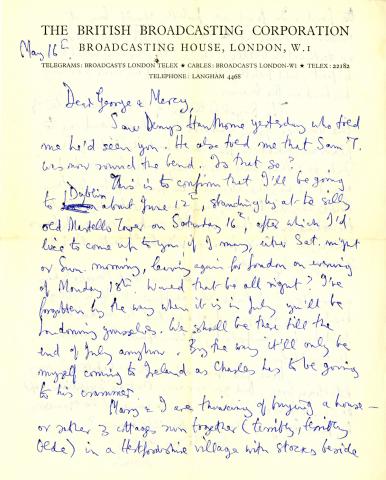 THE BRITISH BROADCASTING CORPORATION
BROADCASTING HOUSE, LONDON, W.1
TELEGRAMS: BROADCASTS LONDON TELEX ★ CABLES: BROADCASTS LONDON-W1 ★ TELEX: 22182
TELEPHONE: LANGHAM 4468
May 16th
Dear George & Mercy,
Saw Denys Hawthorne yesterday who told
me he'd seen you. He also told me that Sam T.
was now round the bend. Is that so?
This is to confirm that I'll be going
to Dublin about June 12th, standing by at silly
old Martello Tower on Saturday 16th, after which I'd
like to come up to you if I may, either Sat. night
or Sun. morning, leaving again for London on evening
of Monday 18th. Would that be all right? I've
forgotten by the way when it is in July you'll be
Londoning yourselves. We shall be there till the
end of July anyhow. By the way it'll only be
myself coming to Ireland as Charles has to be going
to his crammer.
Mary & I are thinking of buying a house —
or rather 3 cottages run together (terribly, terribly
Olde) in a Hertfordshire village with stocks beside